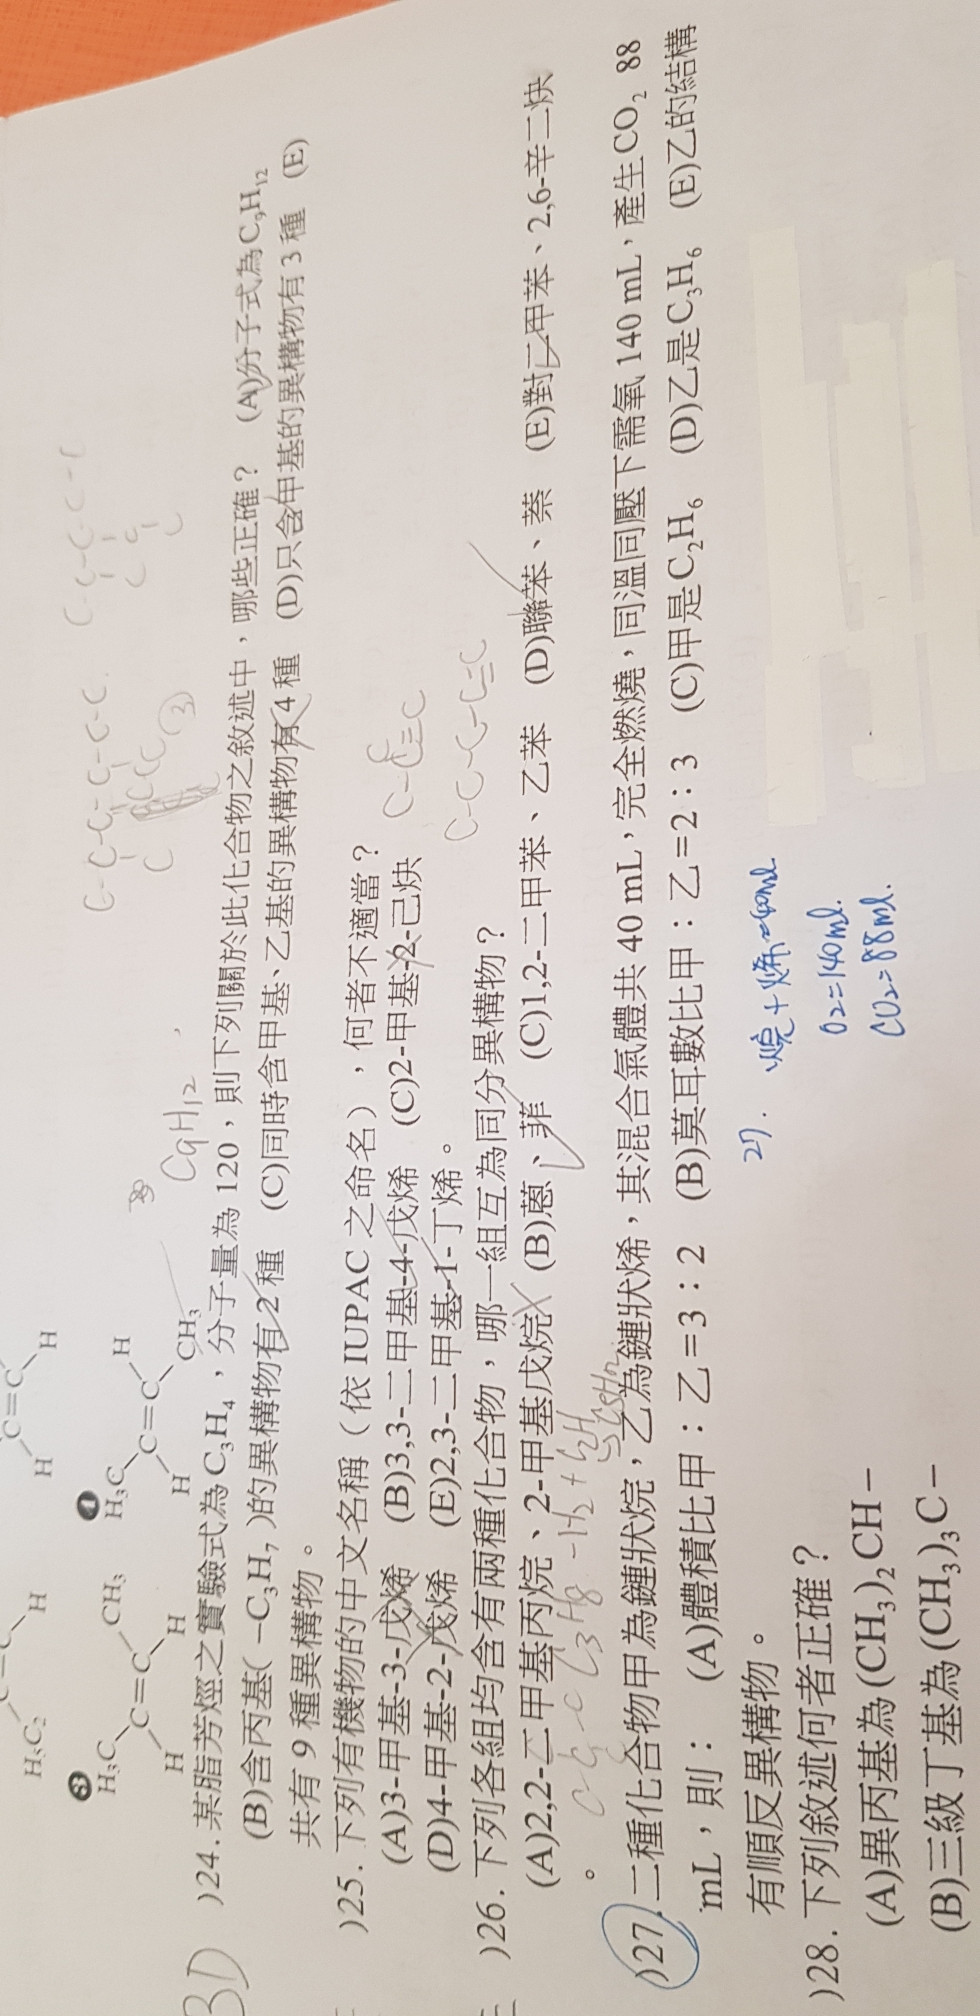 H₅C₂ H H H
❸ H₃C CH₃ ❹ H₃C H
C=C C=C
H H H CH₃
C₉H₁₂
BD )24. 某脂芳烴之實驗式為 C₃H₄，分子量為 120，則下列關於此化合物之敘述中，哪些正確？ (A)分子式為 C₉H₁₂
(B)含丙基( −C₃H₇ )的異構物有 2 種 (C)同時含甲基、乙基的異構物有 4 種 (D)只含甲基的異構物有 3 種 (E)
共有 9 種異構物。
)25. 下列有機物的中文名稱（依 IUPAC 之命名），何者不適當？
(A)3-甲基-3-戊烯 (B)3,3-二甲基-4-戊烯 (C)2-甲基-2-己炔
(D)4-甲基-2-戊烯 (E)2,3-二甲基-1-丁烯。
)26. 下列各組均含有兩種化合物，哪一組互為同分異構物？
(A)2,2-二甲基丙烷、2-甲基戊烷 (B)蒽、菲 (C)1,2-二甲苯、乙苯 (D)聯苯、萘 (E)對二甲苯、2,6-辛二炔
。
)27. 二種化合物甲為鏈狀烷，乙為鏈狀烯，其混合氣體共 40 mL，完全燃燒，同溫同壓下需氧 140 mL，產生 CO₂ 88
mL，則： (A)體積比甲：乙＝3：2 (B)莫耳數比甲：乙＝2：3 (C)甲是 C₂H₆ (D)乙是 C₃H₆ (E)乙的結構
有順反異構物。
27. 烷+烯=40ml
O₂=140ml.
CO₂=88ml.
)28. 下列敘述何者正確？
(A)異丙基為 (CH₃)₂CH−
(B)三級丁基為 (CH₃)₃C−